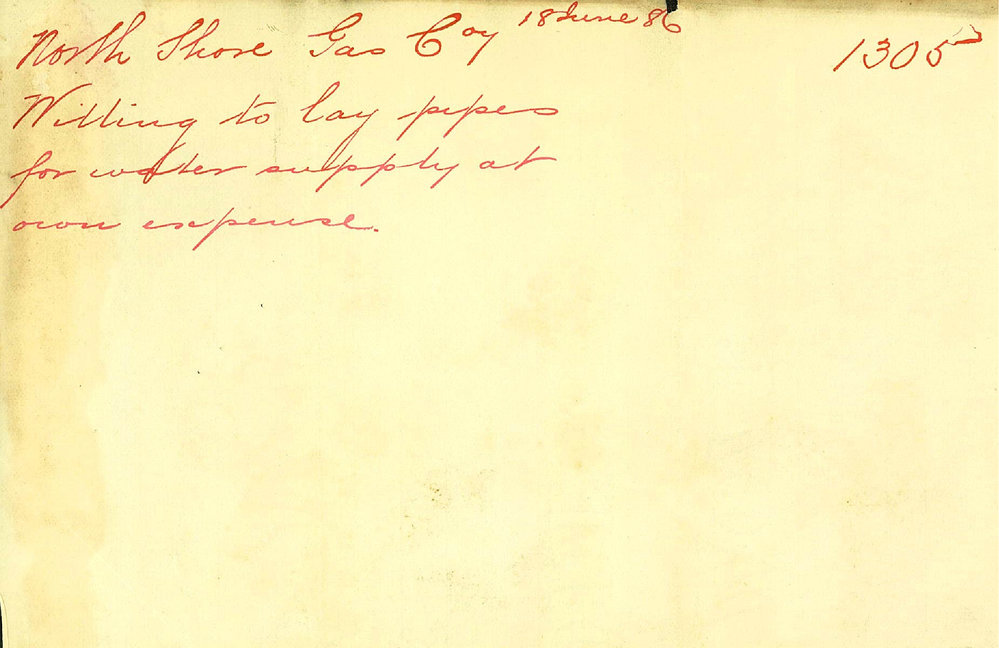 North Shore Gas Coy 18 June 86 1305
Willing to lay pipes
for water supply at
own expense.